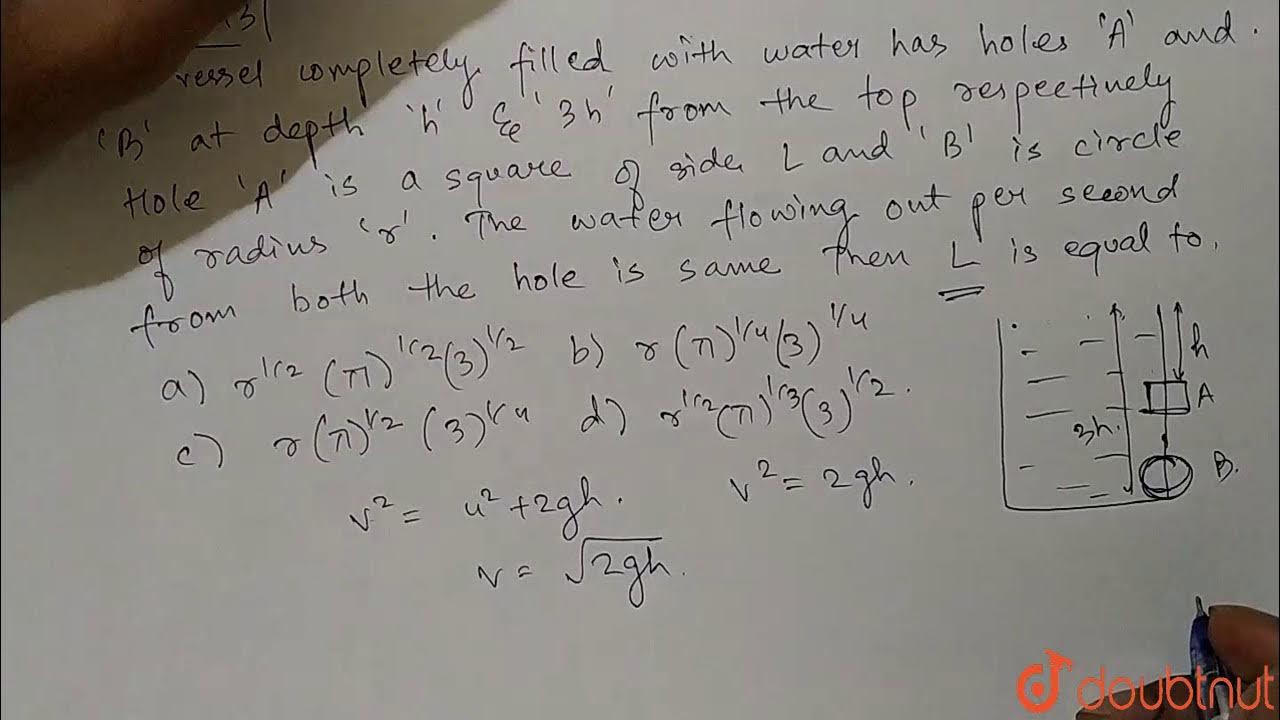 vessel completely filled with water has holes 'A' and
'B' at depth 'h' & '3h' from the top respectively
Hole 'A' is a square of side L and 'B' is circle
of radius 'r'. The water flowing out per second
from both the hole is same then L is equal to.
a) r^1/2 (π)^1/2 (3)^1/2 b) r (π)^1/4 (3)^1/4
c) r (π)^1/2 (3)^1/4 d) r^1/2 (π)^1/3 (3)^1/2.
h
A
3h.
B.
v² = u² + 2gh. v² = 2gh.
v = √2gh.
doubtnut